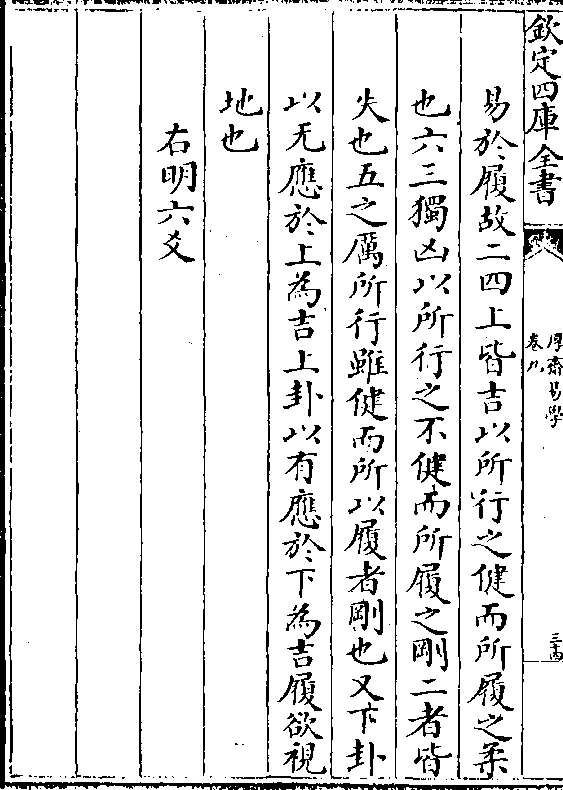 欽定四庫全書
厚齋易學
卷九
三十四
易於履故二四上皆吉以所行之健而所履之柔
也六三獨凶以所行之不健而所履之剛二者皆
失也五之厲所行雖健而所以履者剛也又下卦
以无應於上為吉上卦以有應於下為吉履欲視
地也
右明六爻